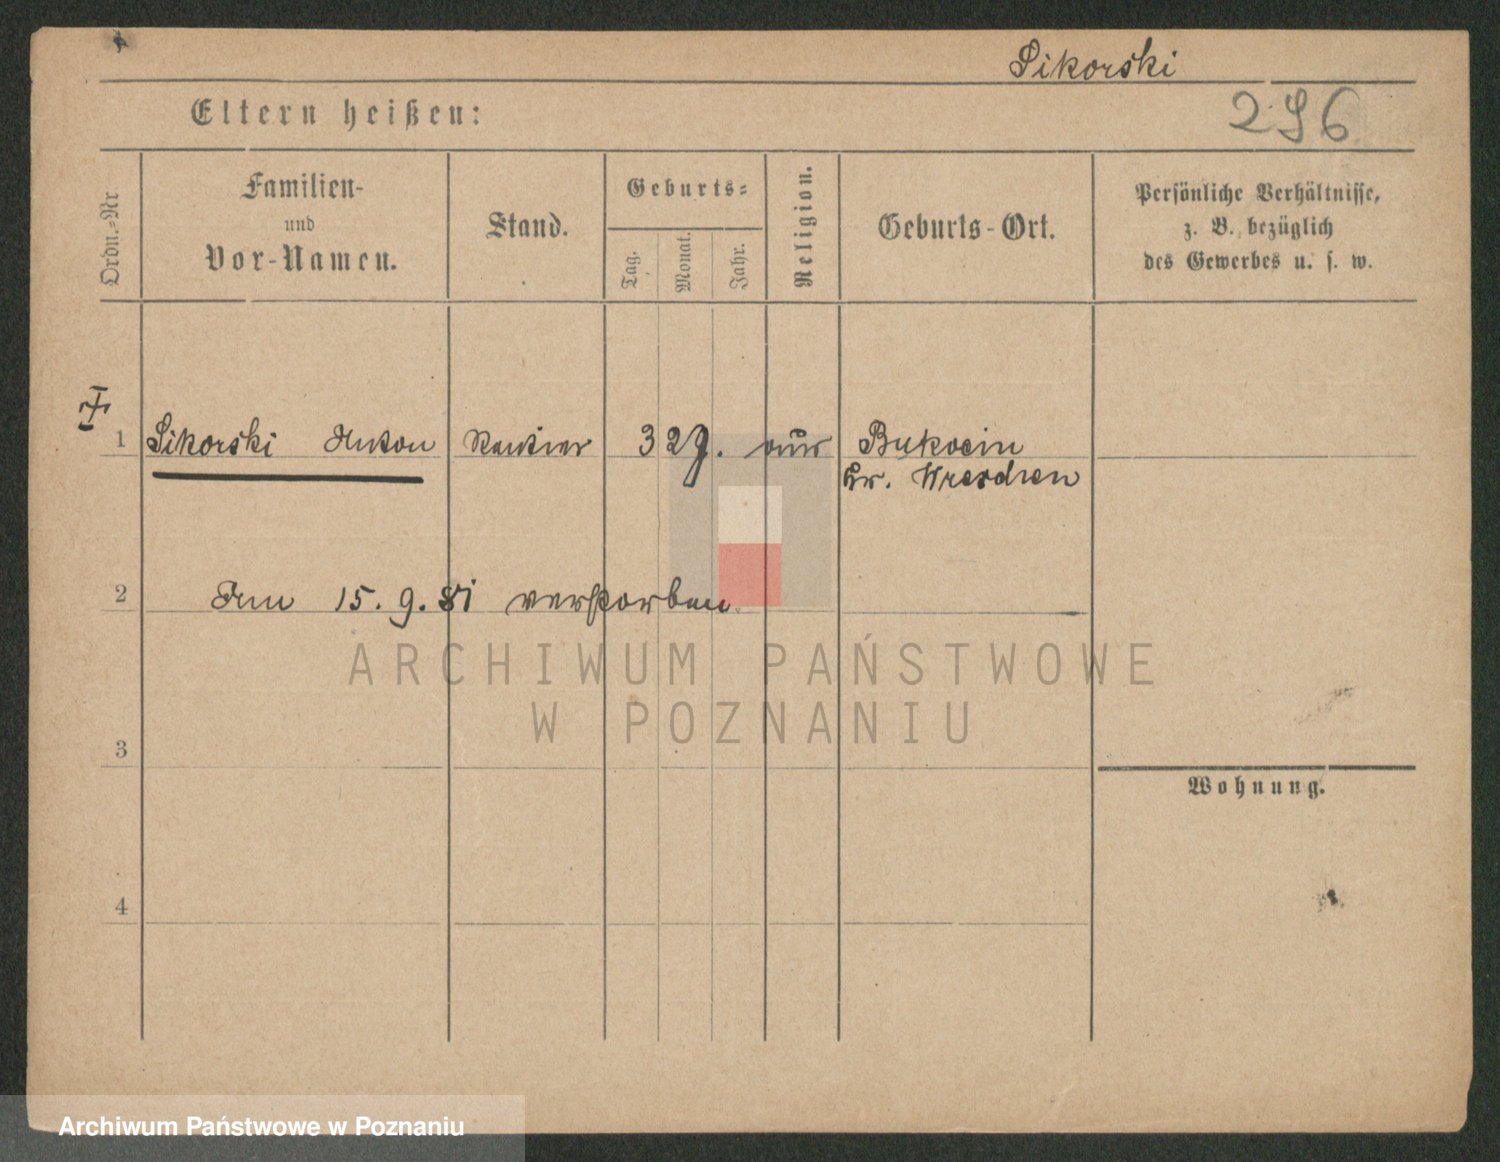 Sikorski
Eltern heißen:
296
Ordn.=Nr
Familien-
und
Vor-Namen.
Stand.
Geburts=
Tag.
Monat.
Jahr.
Religion.
Geburts-Ort.
Persönliche Verhältnisse,
z. B. bezüglich
des Gewerbes u. s. w.
1 Sikorski Anton Rentier 32 J. aus Bukocin
Kr. Wreschen
2 Am 15. 9. 81 verstorben.
ARCHIWUM PAŃSTWOWE
W POZNANIU
3
Wohnung.
4
Archiwum Państwowe w Poznaniu